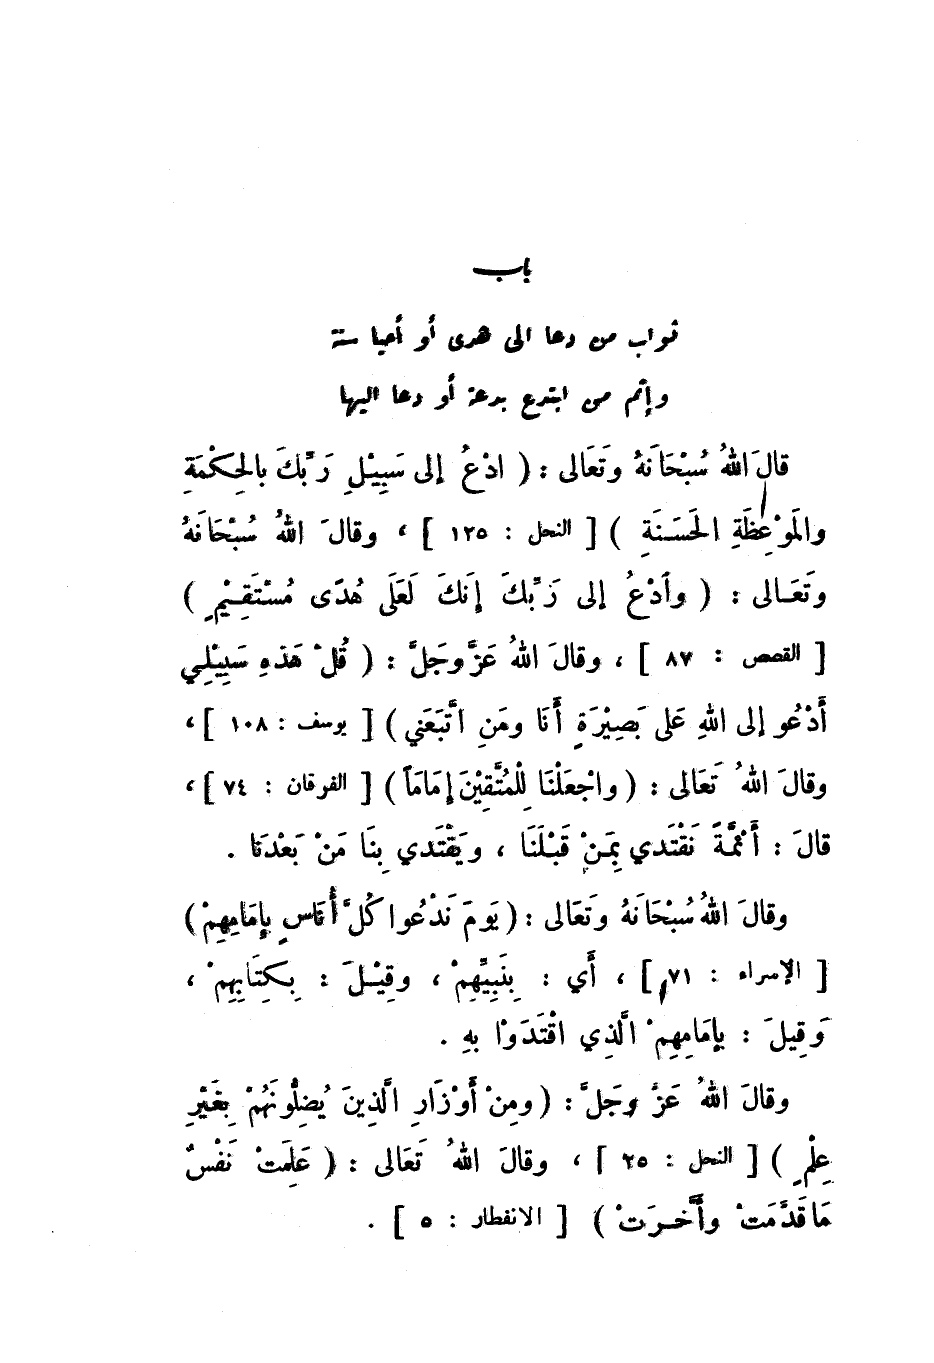 باب
ثواب من دعا الى هدى أو أحيا سنة
وإثم من ابتدع بدعة أو دعا اليها
قالَ اللهُ سُبْحَانَهُ وتَعَالى : ( ادْعُ إلى سَبِيْلِ رَبِّكَ بالحِكْمَةِ
والمَوْعِظَةِ الحَسَنَةِ ) [ النحل : ١٢٥ ] ، وقالَ اللهُ سُبْحَانَهُ
وتَعَالى : ( وأدْعُ إلى رَبِّكَ إنَكَ لَعَلَى هُدًى مُسْتَقِيْمٍ )
[ القصص : ٨٧ ] ، وقالَ اللهُ عَزَّ وجَلَّ : ( قُلْ هَذهِ سَبِيْلِي
أَدْعُو إلى اللهِ عَلى بَصِيْرَةٍ أَنَا ومَنِ اتَّبَعَني ) [ يوسف : ١٠٨ ] ،
وقالَ اللهُ تَعَالى : ( واجْعَلْنَا لِلْمُتَّقِيْنَ إمَامَاً ) [ الفرقان : ٧٤ ] ،
قالَ : أَئمَّةً نَقْتَدي بِمَنْ قَبْلَنَا ، ويَقْتَدي بِنَا مَنْ بَعْدَنا .
وقالَ اللهُ سُبْحَانَهُ وتَعَالى : ( يَومَ نَدْعُوا كُلَّ أُنَاسٍ بإمَامِهِمْ )
[ الإسراء : ٧١ ] ، أَي : بِنَبِيِّهِمْ ، وقِيْلَ : بِكِتَابِهِمْ ،
وَقِيلَ : بإمَامِهِمْ الَّذِي اقْتَدَوْا بهِ .
وقالَ اللهُ عَزَّ وجَلَّ : ( ومِنْ أَوْزَارِ الَّذِينَ يُضِلُّونَهُمْ بِغَيْرِ
عِلْمٍ ) [ النحل : ٢٥ ] ، وقالَ اللهُ تَعَالى : ( عَلِمَتْ نَفْسٌ
مَا قَدَّمَتْ وأَخَّرَتْ ) [ الانفطار : ٥ ] .